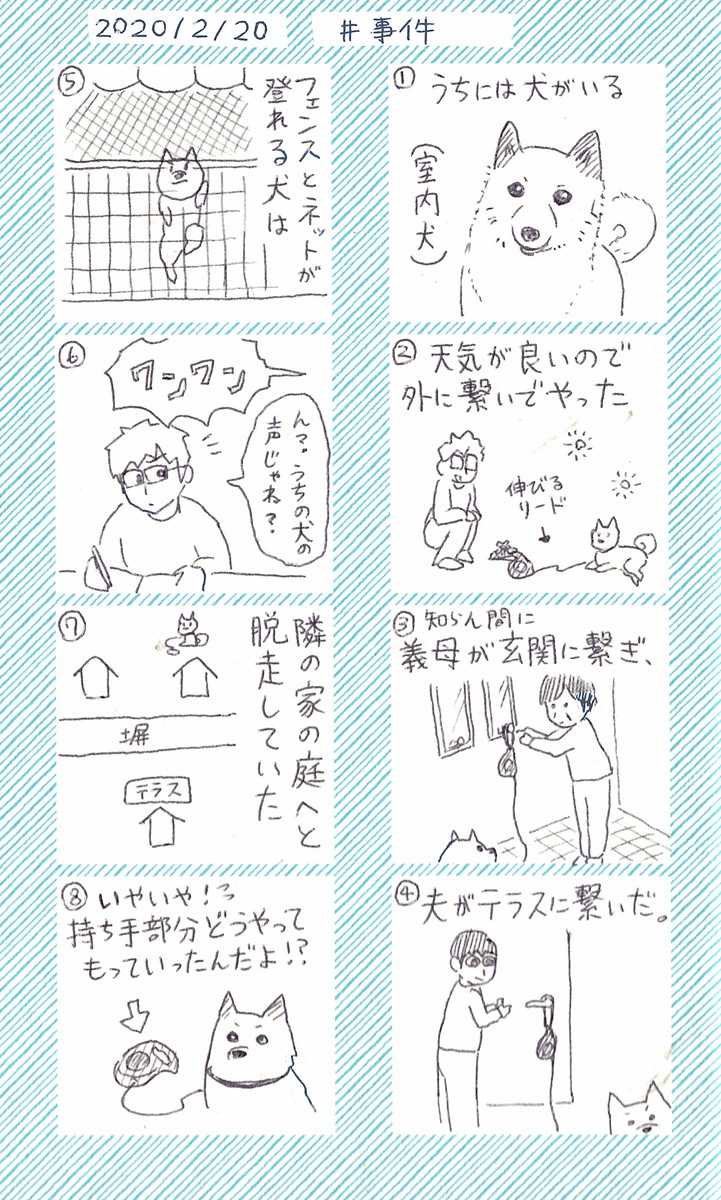 2020/2/20 #事件
①
うちには犬がいる
(室内犬)
②
天気が良いので
外に繋いでやった
伸びる
リード
③
知らん間に
義母が玄関に繋ぎ、
④
夫がテラスに繋いだ。
⑤
フェンスとネットが
登れる犬は
⑥
ワンワン
ん?。うちの犬の
声じゃね?
⑦
隣の家の庭へと
脱走していた
塀
テラス
⑧
いやいや!?
持ち手部分どうやって
もっていったんだよ!?